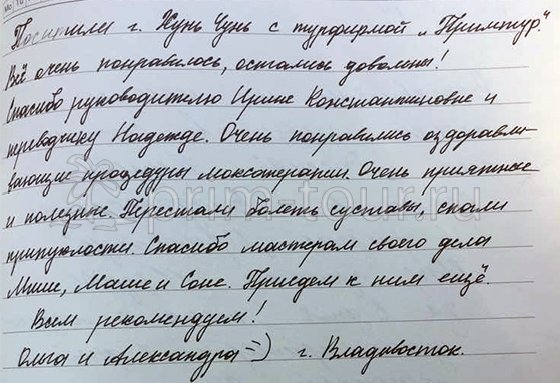 Посетили г. Хунь Чунь с турфирмой „Примтур".
Всё очень понравилось, остались довольны!
Спасибо руководителю Ирине Константиновне и
переводчику Надежде. Очень понравились оздоравли-
вающие процедуры моксотерапии. Очень приятные
и полезные. Перестали болеть суставы, спали
припухлости. Спасибо мастерам своего дела
Мише, Маше и Соне. Приедем к ним ещё.
Всем рекомендуем!
Ольга и Александра =) г. Владивосток.
prim-tour.ru